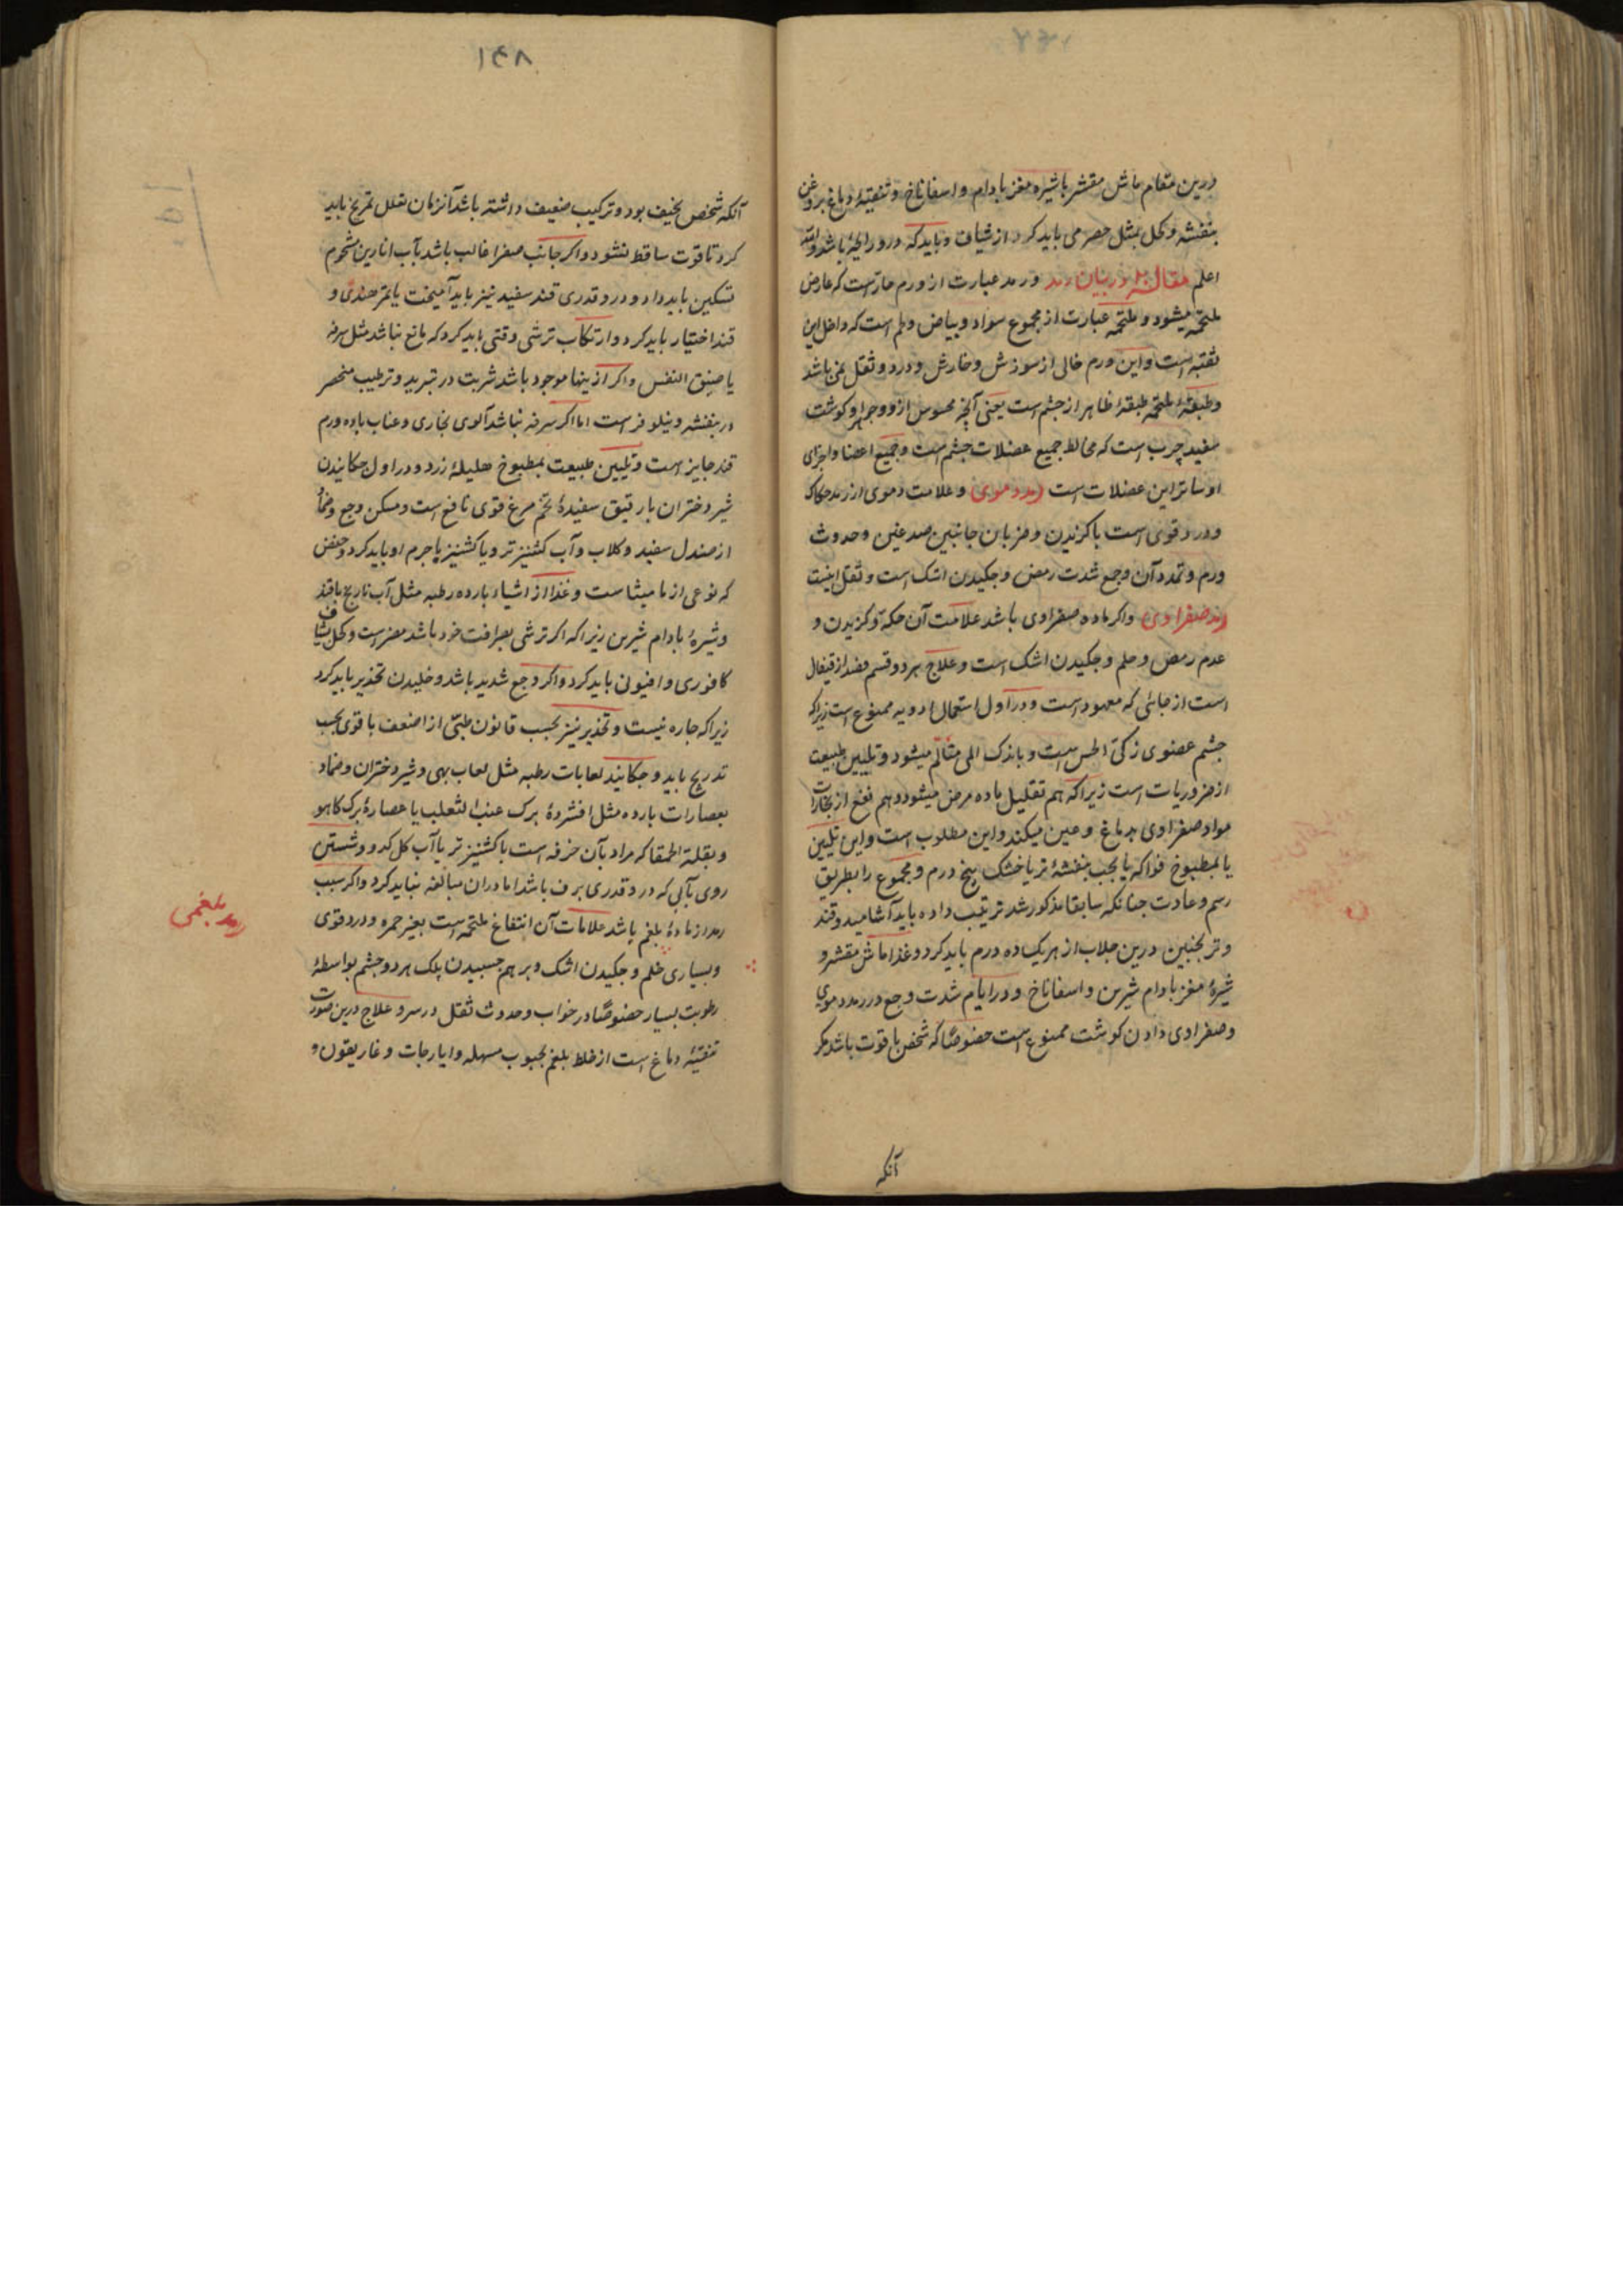 درین مقام ماش مقشر با شیره مغز بادام و اسفاناخ و تنقیهٔ دماغ بروغن
بنفشه و کحل بمثل حصرمی باید کرد از شیاف و باید که درو رایحهٔ باشد والله
اعلم مقاله در بیان رمد و رمد عبارت از ورم حارست که عارض
ملتحمه میشود و ملتحمه عبارت از مجموع سواد و بیاض و لحم است که داخل این
ثقبه است و این ورم خالی از سوزش و خارش و درد و ثقل نمی باشد
و طبقهٔ ملتحمه طبقهٔ ظاهر از چشم است یعنی آنچه محسوس ازو و جوهر او کوشت
سفید چرب است که مخالط جمیع عضلات چشم است و جمیع اعضا و اجزای
او ساتر این عضلات است رمد دموی و علامت دموی از رمد حکاک
و درد قوی است با کزیدن و ضربان جانبین صدغین و حدوث
ورم و تمدد آن وجع شدت رمص و چکیدن اشک است و ثقل اینیت
رمد صفراوی و اکر ماده صفراوی باشد علامت آن حکة و کزیدن و
عدم رمص و حلم و چکیدن اشک است و علاج هر دو قسم فصد از قیفال
است از جائی که معهود است و در اول استعمال ادویه ممنوع است زیرا که
چشم عضوی زکی الحس است و باندک المی متألم میشود و تلیین طبیعت
از ضروریات است زیرا که هم تقلیل ماده مرض میشود و هم نفع از بخارات
مواد صفراوی بدماغ و عین میکند و این مطلوب است و این تلیین
یا بمطبوخ فواکه یا بحب بنفشهٔ تر یا خشک پنج درم و مجموع را بطریق
رسم و عادت چنانکه سابقا مذکور شد ترتیب داده باید آشامید و قند
و ترنجبین درین جلاب از هر یک ده درم باید کرد و غذا ماش مقشر و
شیرهٔ مغز بادام شیرین و اسفاناخ و در ایام شدت وجع در رمد دموی
و صفراوی دادن کوشت ممنوع است خصوصًا که شخص با قوت باشد مکر
آنکه
۱۴۸
آنکه شخص نحیف بود و ترکیب ضعیف داشته باشد آنزمان تعلل تمریخ باید
کرد تا قوت ساقط نشود و اکر جانب صفرا غالب باشد بآب انارین شحوم
تسکین باید داد و درو قدری قند سفید نیز باید آمیخت یا بتمر هندی و
قند اختیار باید کرد و ارتکاب ترشی وقتی باید کرد که مانع نباشد مثل سرفه
یا ضیق النفس و اکر ازینها موجود باشد شربت در تبرید و ترطیب منحصر
در بنفشه و نیلوفر است اما اکر سرفه نباشد آلوی بخاری و عناب با ده درم
قند جایز است و تلیین طبیعت بمطبوخ هلیلهٔ زرد و در اول چکانیدن
شیر دختران با رقیق سفیدهٔ تخم مرغ قوی نافع است و مسکن وجع و ضماد
از صندل سفید و کلاب و آب کشنیز تر و یا کشنیز با جرم او باید کرد و حضض
که نوعی از مامیثاست و غذا از اشیاء بارده رطبه مثل آب نارنج با قند
و شیرهٔ بادام شیرین زیرا که اکر ترشی بصرافت خود باشد مضر است و کحل بشیاف
کافوری و افیون باید کرد و اکر وجع شدید باشد و خلیدن تخدیر باید کرد
زیرا که چاره نیست و تخدیر نیز بحسب قانون طبی از اضعف با قوی بحسب
تدریج باید و چکانید لعابات رطبه مثل لعاب بهی و شیر دختران و ضماد
بعصارات بارده مثل افشردهٔ برک عنب الثعلب یا عصارهٔ برک کاهو
و بقلة الحمقا که مراد بآن خرفه است با کشنیز تر یا آب کل کدو و شستن
روی بآبی که درو قدری برف باشد اما دران مبالغه نباید کرد و اکر سبب
رمد از مادهٔ بلغم باشد علامات آن انتفاخ ملتحمه است بغیر حمره و درد قوی
و بسیاری حلم و چکیدن اشک و بر هم چسبیدن پلک هر دو چشم بواسطهٔ
رطوبت بسیار خصوصًا در خواب و حدوث ثقل در سر و علاج درین صورت
تنقیهٔ دماغ است از خلط بلغم بحبوب مسهله و ایارجات و غاریقون و
رمد بلغمی